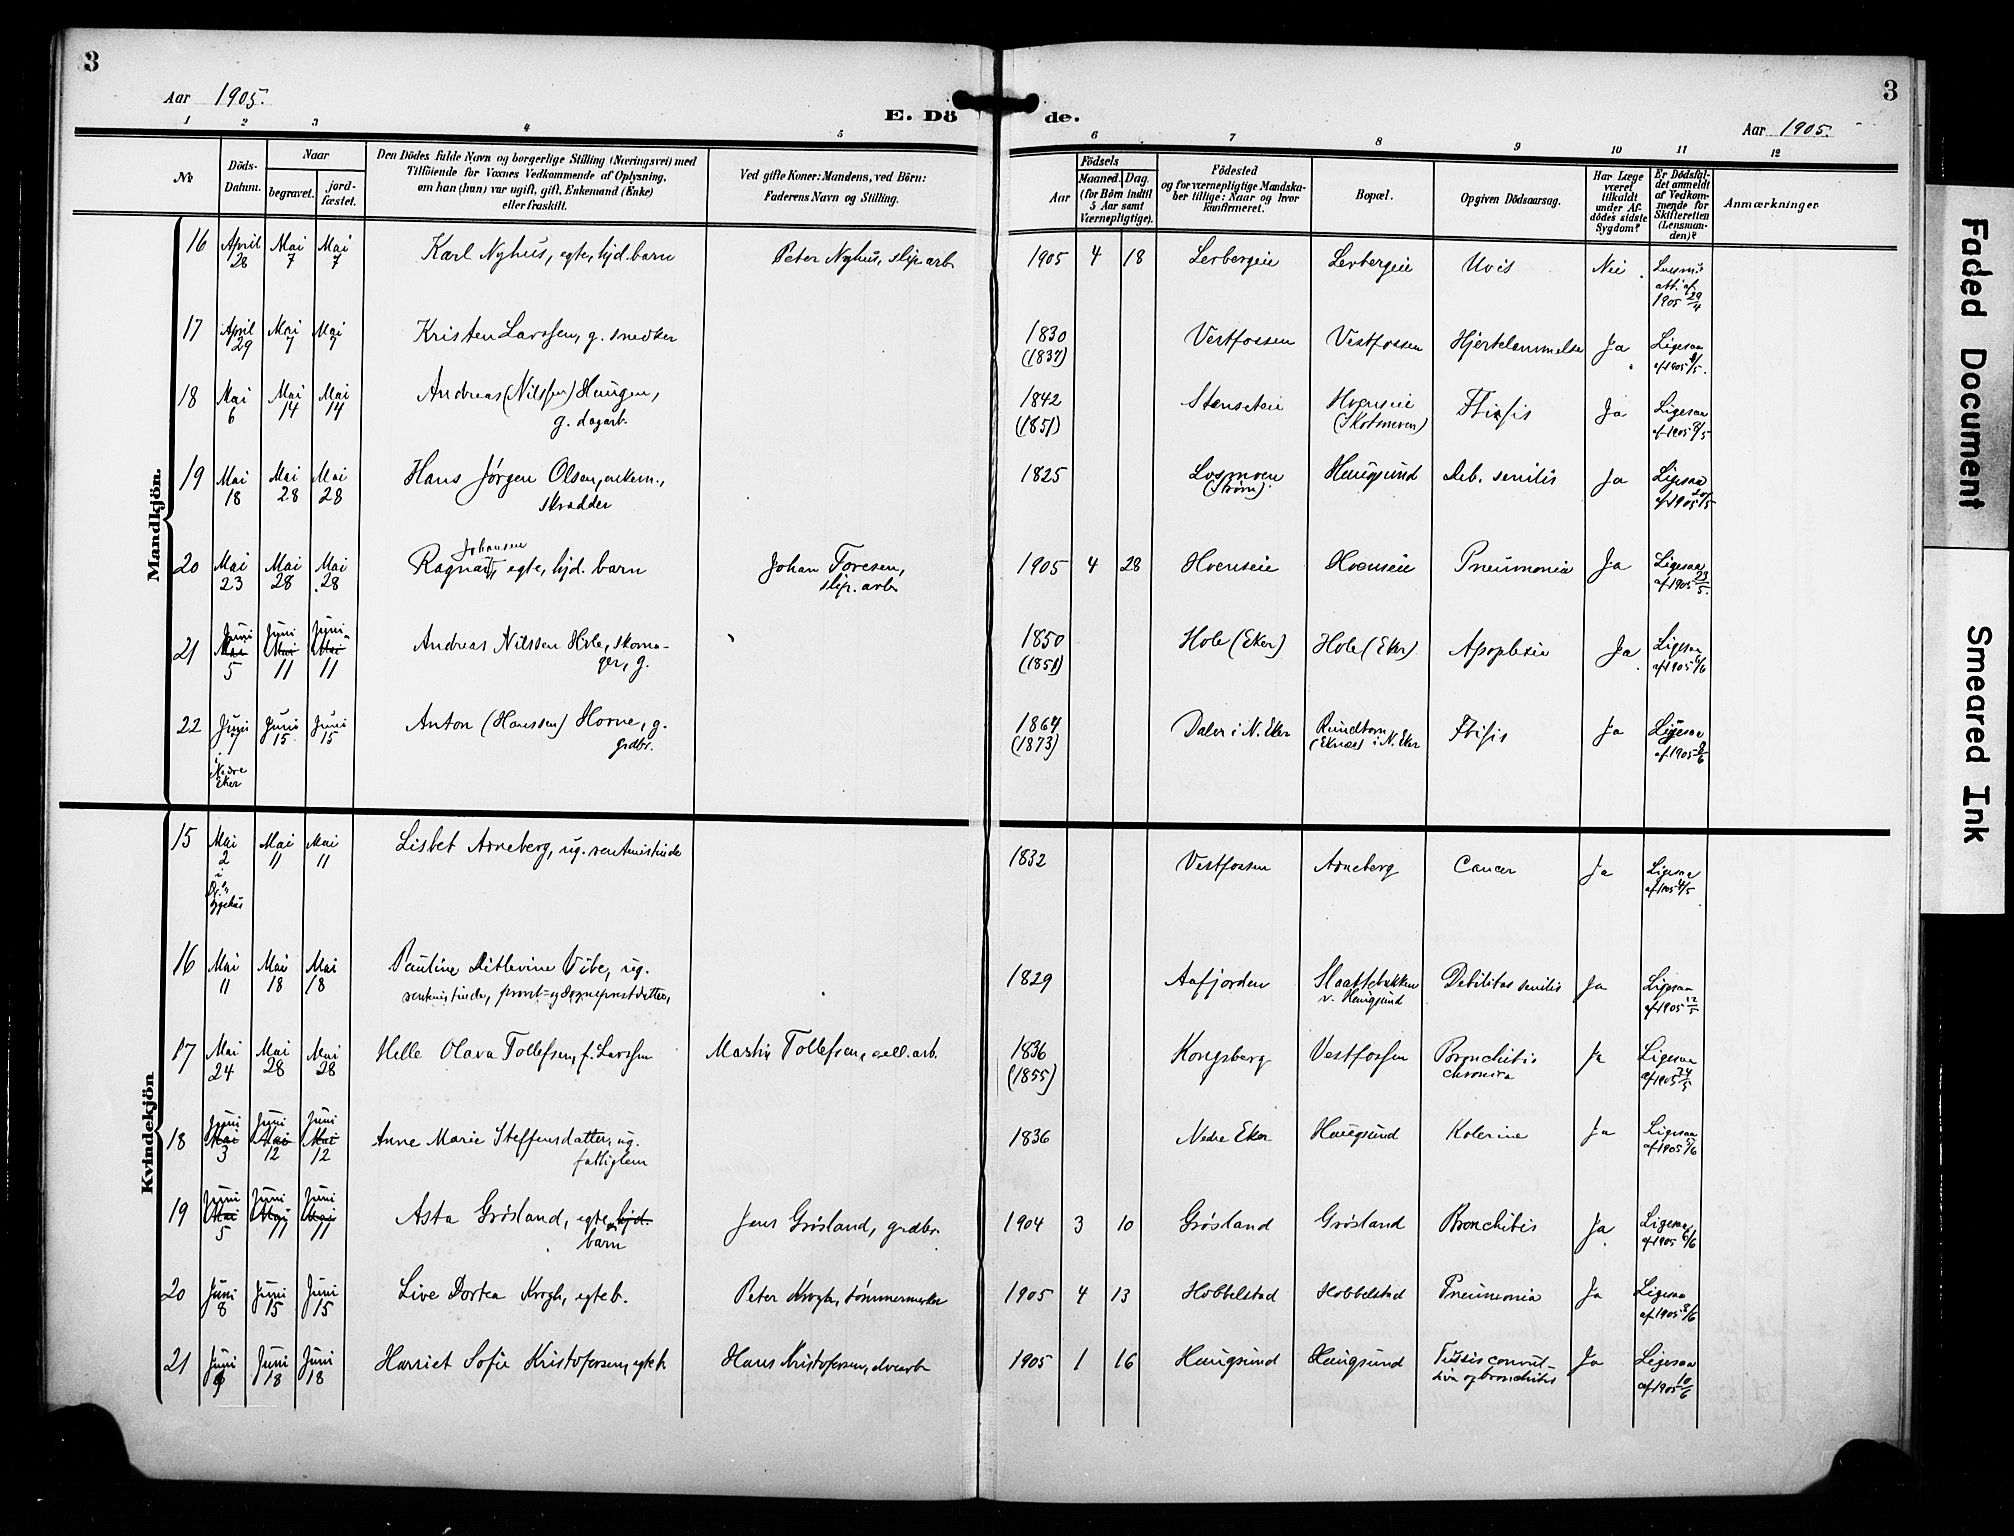 3
Aar 1905.
E. Dö
de.
3
Aar 1905.
1 2 3 4 5 6 7 8 9 10 11 12
№
Döds-
Datum.
Naar
begravet.
jord-
fæstet.
Den Dödes fulde Navn og borgerlige Stilling (Næringsvei) med
Tilföiende for Voxnes Vedkommende af Oplysning,
om han (hun) var ugift, gift, Enkemand (Enke)
eller fraskilt.
Ved gifte Koner: Mandens, ved Börn:
Faderens Navn og Stilling.
Födsels
Aar
Maaned.
Dag
(for Börn indtil
5 Aar samt
Værnepligtige).
Födested
og for værnepligtige Mandska-
ber tillige: Naar og hvor
konfirmeret.
Bopæl.
Opgiven Dödsaarsag.
Har Læge
været
tilkaldt
under Af-
dödes sidste
Sygdom?
Er Dödsfal-
det anmeldt
af Vedkom-
mende for
Skifteretten
(Lensman-
den)?
Anmærkninger
Mandkjön.
16 April 28 Mai 7 Mai 7 Karl Nyhus, egte, hjd. barn Peter Nyhus, slip. arb 1905 4 18 Lerbergeie Lerbergeie Uvis Nei
1905 29/4
17 April 29 Mai 7 Mai 7 Kristen Larssen, g. snedker 1830 Vestfossen Vestfossen Hjertelammelse Ja Ligesaa
(1837) af 1905
18 Mai 6 Mai 14 Mai 14 Andreas (Nilssen) Haugen, 1842 Hoenseie Ftisis Ja Ligesaa
g. dagarb. (1851) af 1905 8/5
19 Mai 18 Mai 28 Mai 28 Hans Jørgen Olsen, enkem., 1825 Losmoen Haugsund Deb. senilis Ja Ligesaa
skrædder (Strøm) af 1905 20/5
20 Mai 23 Mai 28 Mai 28 Johansen
Ragnar, egte, hjd. barn Johan Toresen, 1905 4 28 Hoenseie Hoenseie Pneumonia Ja Ligesaa
slip. arb af 1905 23/5
21 Juni Mai 5 Juni Mai 11 Juni Mai 11 Andreas Nilssen Hole, skoma- 1850 Hole (Eker) Hole (Eker) Apoplexia Ja Ligesaa
ger, g. (1851) af 1905 6/6
22 Juni 7 Juni 15 Juni 15 Anton (Hanssen) Horne, g. 1864 Daler i N. Eker Ftisis Ja Ligesaa
i Nedre Eker grdbr. (1873) (Eknes) i N. Eker af 1905 8/6
Kvindekjön
15 Mai 2 Mai 11 Mai 11 Lisbet Arneberg, ug. rentenistinde 1832 Vestfossen Arneberg Cancer Ja Ligesaa
af 1905 4/5
16 Mai 11 Mai 18 Mai 18 Pauline Ditlevine Vibe, ug. 1829 Aafjorden Slaattebakken Debilitas senilis Ja Ligesaa
rentenistinde, provst- og sogneprestdatter, v. Haugsund af 1905 12/5
17 Mai 24 Mai 28 Mai 28 Helle Olava Tollefsen, f. Larssen Martin Tollefsen, cell. arb. 1836 Kongsberg Vestfossen Bronchitis Ja Ligesaa
(1855) chronica af 1905 24/5
18 Juni Mai 3 Juni Mai 12 Juni Mai 12 Anne Marie Steffensdatter, ug. 1836 Nedre Eker Haugsund Kolerine Ja Ligesaa
fattiglem af 1905 5/6
19 Juni Mai 5 Juni Mai 11 Juni Mai 11 Asta Grøsland, egte, hjd. Jens Grøsland, grdbr. 1904 3 10 Grøsland Grøsland Bronchitis Ja Ligesaa
barn af 1905 6/6
20 Juni 8 Juni 15 Juni 15 Live Dortea Krogh, egte b. Peter Krogh, tømmermerker 1905 4 13 Hobbelstad Hobbelstad Pneumonia Ja Ligesaa
af 1905 8/6
21 Juni 9 Juni 18 Juni 18 Harriet Sofie Kristofersen, egte b Hans Kristofersen, elvearb 1905 1 16 Haugsund Haugsund Tussis convul- Ja Ligesaa
siva og bronchitis af 1905 10/6
Faded Document
Smeared Ink